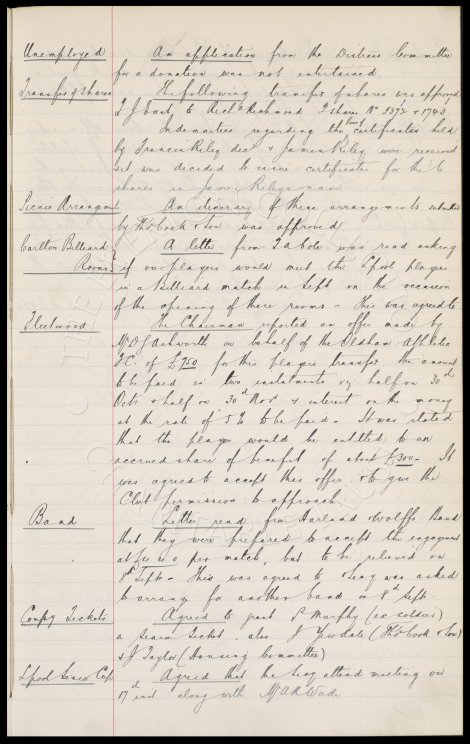 Unemployed An application from the Distress Committee
for a donation was not entertained.
Transfer of Shares The following transfer of shares was approved
T J East to Rich'd Richmond 2 shares Nos 1372 & 1743.
Indemnities regarding the lost certificates held
by Francis Riley dec'd & James Riley were received
& it was decided to issue certificates for the 6
shares in James Riley's name
Scenic Arrangements An itinerary of these arrangements submitted
by Thos Cook & Son was approved
Carlton Billiard A letter from was read asking
Rooms if our players would meet the L'pool players
in a Billiard match in Sept on the occasion
of the opening of these rooms - This was agreed to
Fleetwood The Chairman reported an offer made by
Mr D Ashworth on behalf of the Oldham Athletic
F.C. of £750 for this player's transfer, the amount
to be paid in two instalments viz half on 30th
Octr & half on 30th Novr & interest on the money
at the rate of 5% to be paid - It was stated
that the player would be entitled to an
accrued share of benefit of about £300 - It
was agreed to accept this offer & to give the
Club permission to approach.
Band Letter read from Harland & Wolff's Band
that they were prepared to accept the engagement
at per match, but to be relieved on
8th Sept - This was agreed to & Secy was asked
to arrange for another band on 8th Sept.
Comp'y Tickets Agreed to grant P Murphy (ex soldier)
a season ticket, also J Yewdale (Thos Cook & Son)
& J Taylor (Housing Committee)
L'pool Senior Cup Agreed that the Secy attend meeting on
17th inst along with Mr A R Wade